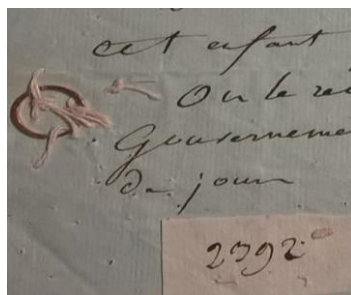 cet enfant
On le
Gouvernement
de jour
2392